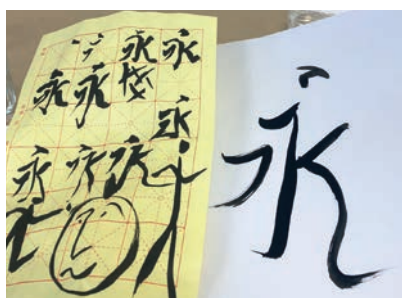 永 永
永 永
永
永 永 永
永